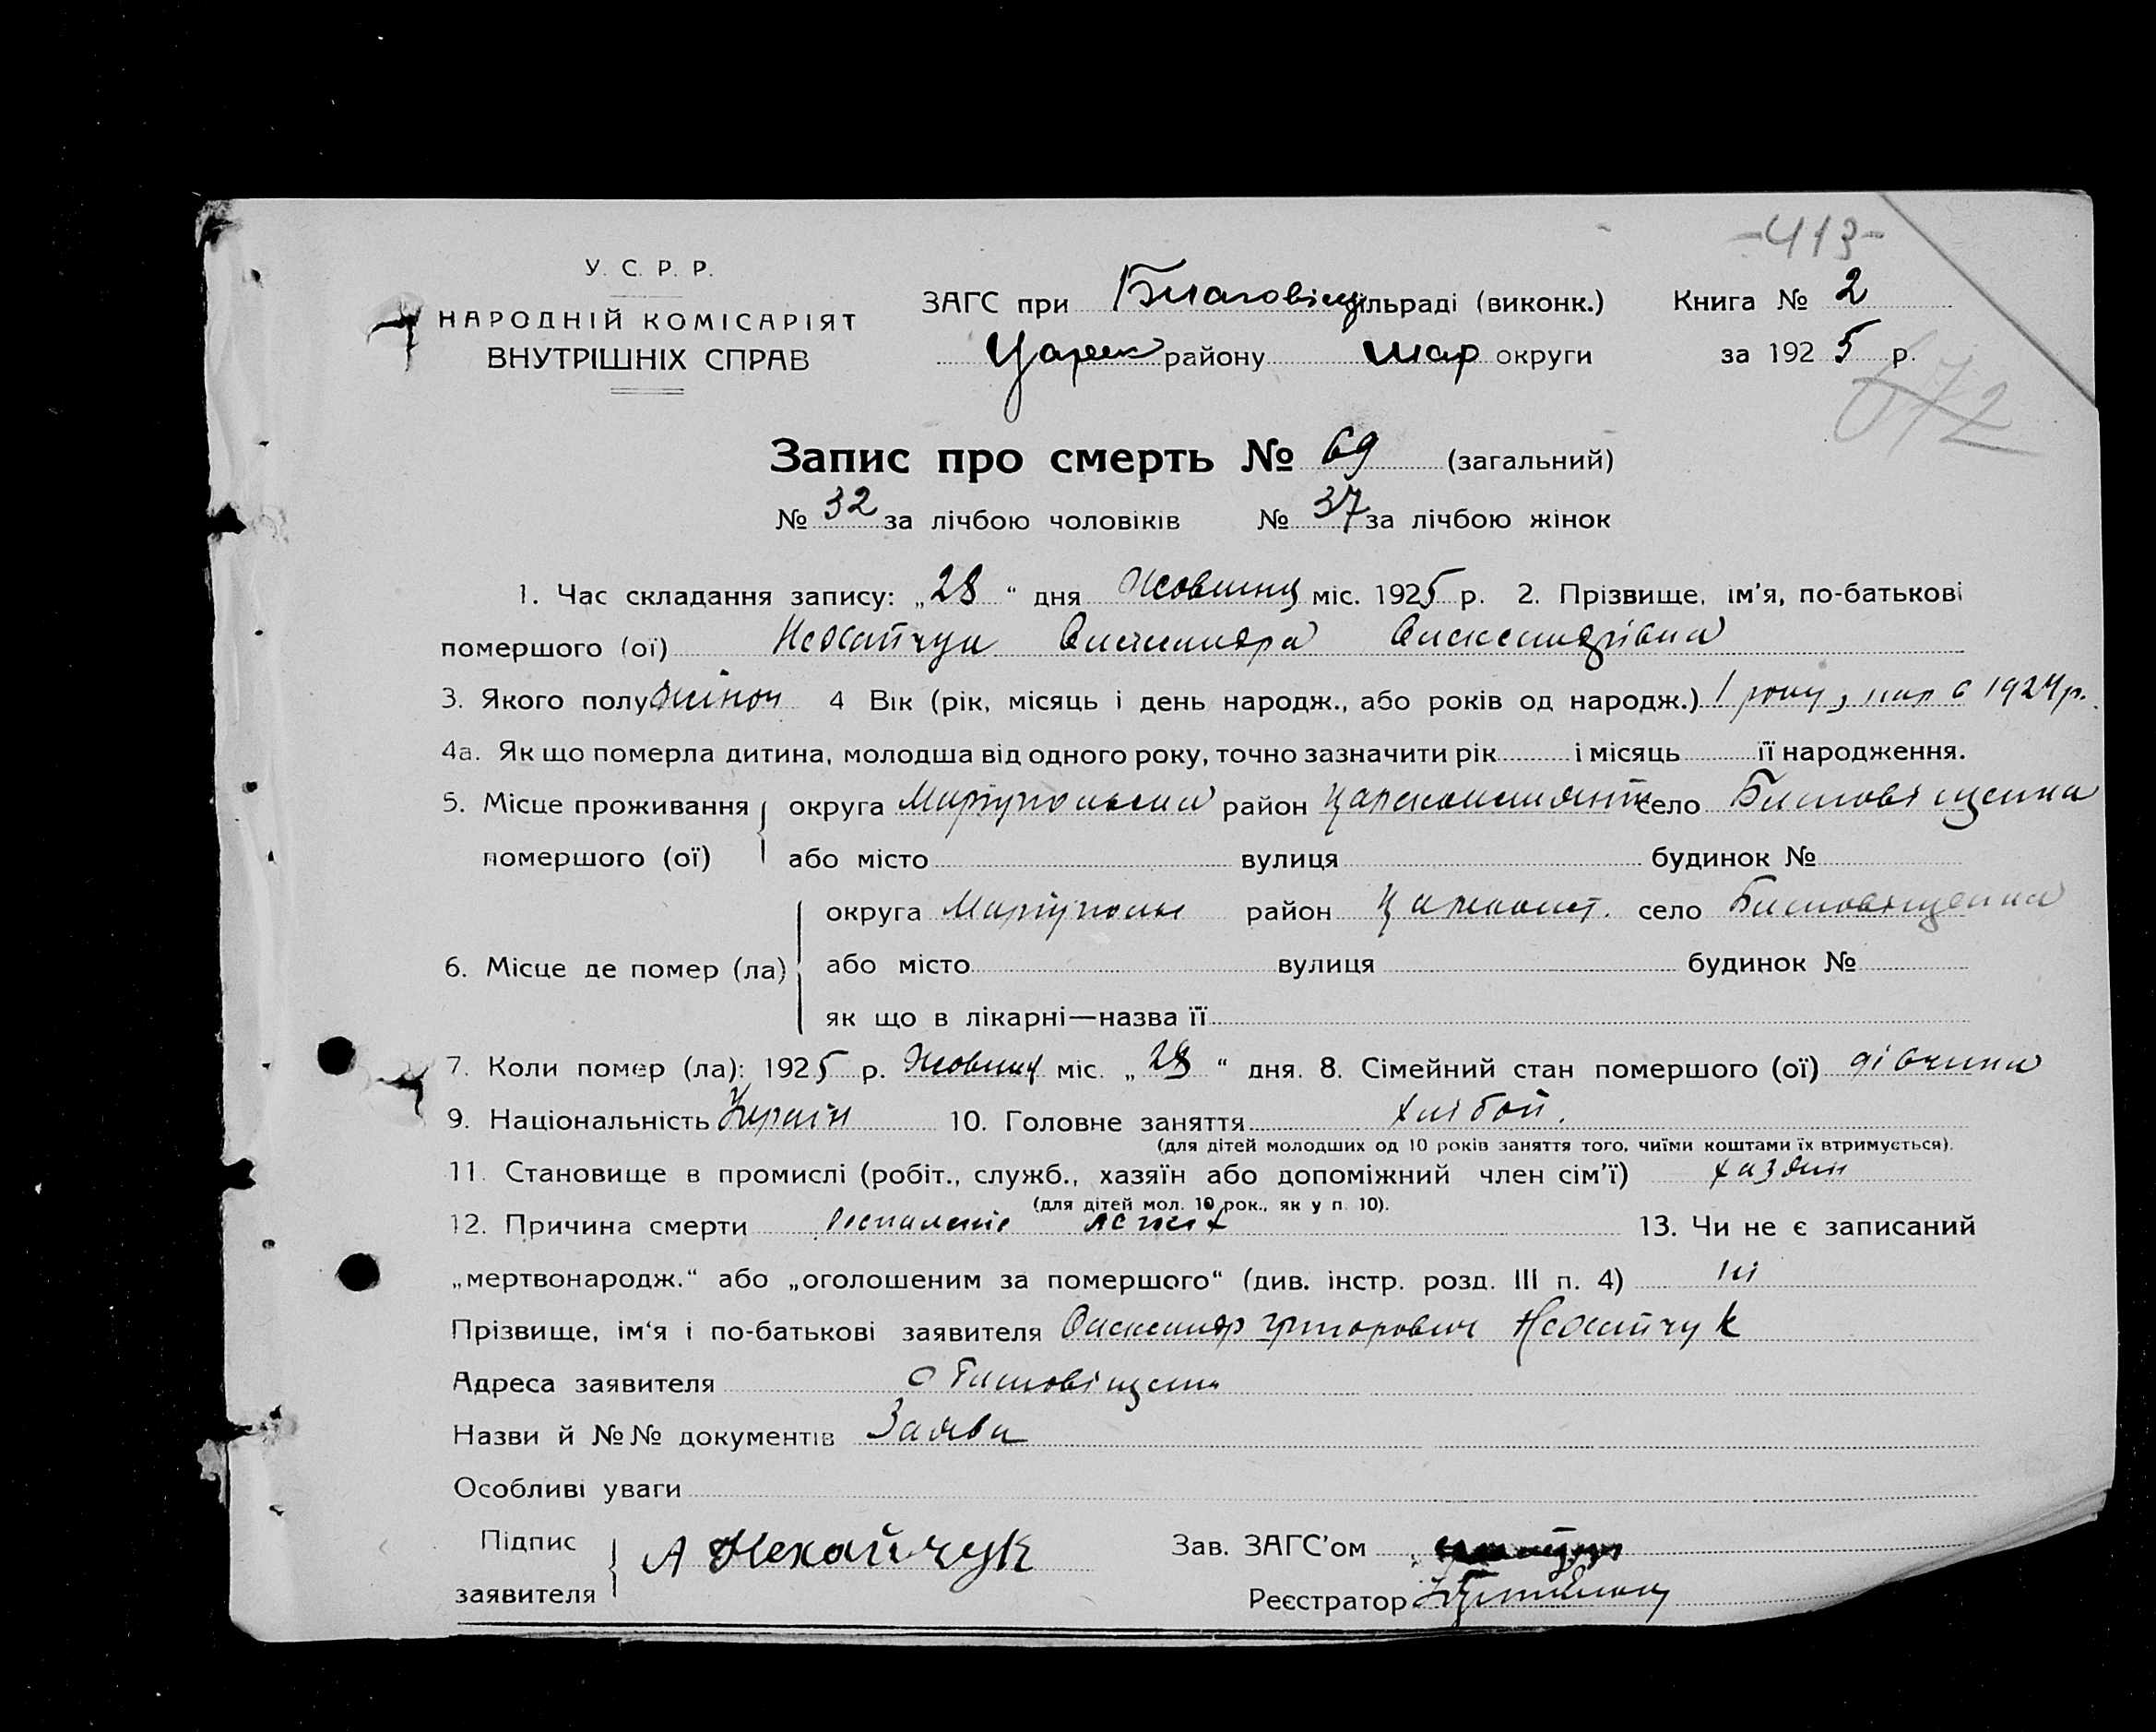 -413-
У. С. Р. Р.
НАРОДНІЙ КОМІСАРІЯТ
ВНУТРІШНІХ СПРАВ
ЗАГС при Благовіщ сільраді (виконк.) Книга № 2
Царек району Мар округи за 1925 р.
672
Запис про смерть № 69 (загальний)
№ 32 за лічбою чоловіків № 37 за лічбою жінок
1. Час складання запису: „28“ дня Жовтня міс. 1925 р. 2. Прізвище, ім'я, по-батькові
помершого (ої) Нехайчук Олександра Олександрівна
3. Якого полу жіноч 4 Вік (рік, місяць і день народж., або років од народж.) 1 року, нар в 1924 р.
4а. Як що померла дитина, молодша від одного року, точно зазначити рік і місяць її народження.
5. Місце проживання округа Маріупольська район Цареконстянт село Благовіщенка
помершого (ої) або місто вулиця будинок №
округа Маріуполь район Царекост. село Благовіщенка
6. Місце де помер (ла) або місто вулиця будинок №
як що в лікарні—назва її
7. Коли помер (ла): 1925 р. Жовтня міс. „28“ дня. 8. Сімейний стан помершого (ої) дівчина
9. Національність Україн 10. Головне заняття хлібор.
(для дітей молодших од 10 років заняття того, чиїми коштами їх втримується).
11. Становище в промислі (робіт., служб., хазяїн або допоміжний член сім'ї) хазяин
(для дітей мол. 10 рок., як у п. 10).
12. Причина смерти легких 13. Чи не є записаний
„мертвонародж.“ або „оголошеним за помершого“ (див. інстр. розд. III п. 4) ні
Прізвище, ім'я і по-батькові заявителя Олександр Григорович Нехайчук
Адреса заявителя с Благовіщенка
Назви й №№ документів Заява
Особливі уваги
Підпис А Нехайчук Зав. ЗАГС'ом
заявителя Реєстратор